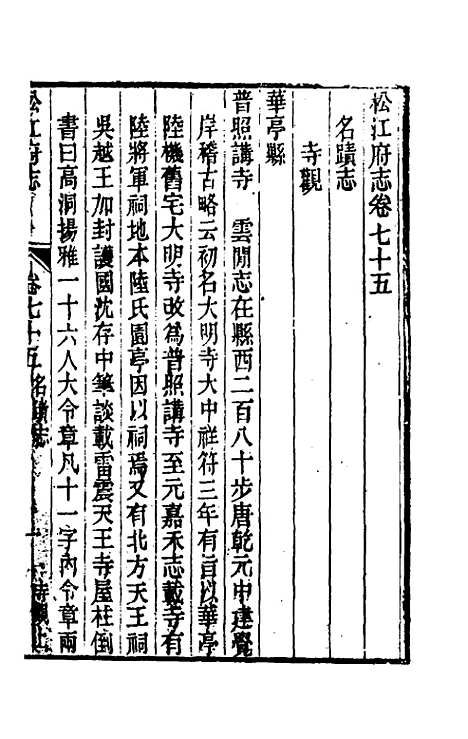 松江府志卷七十五
名蹟志
寺觀
華亭縣
普照講寺　雲閒志在縣西二百八十步唐乾元中建覺
岸稽古略云初名大明寺大中祥符三年有旨以華亭
陸機舊宅大明寺改為普照講寺至元嘉禾志載寺有
陸將軍祠地本陸氏園亭因以祠焉又有北方天王祠
吳越王加封護國沈存中筆談載雷震天王寺屋柱倒
書曰高洞揚雅一十六人大令章凡十一字內令章兩
松江府志　卷七十五　名蹟志　寺觀上